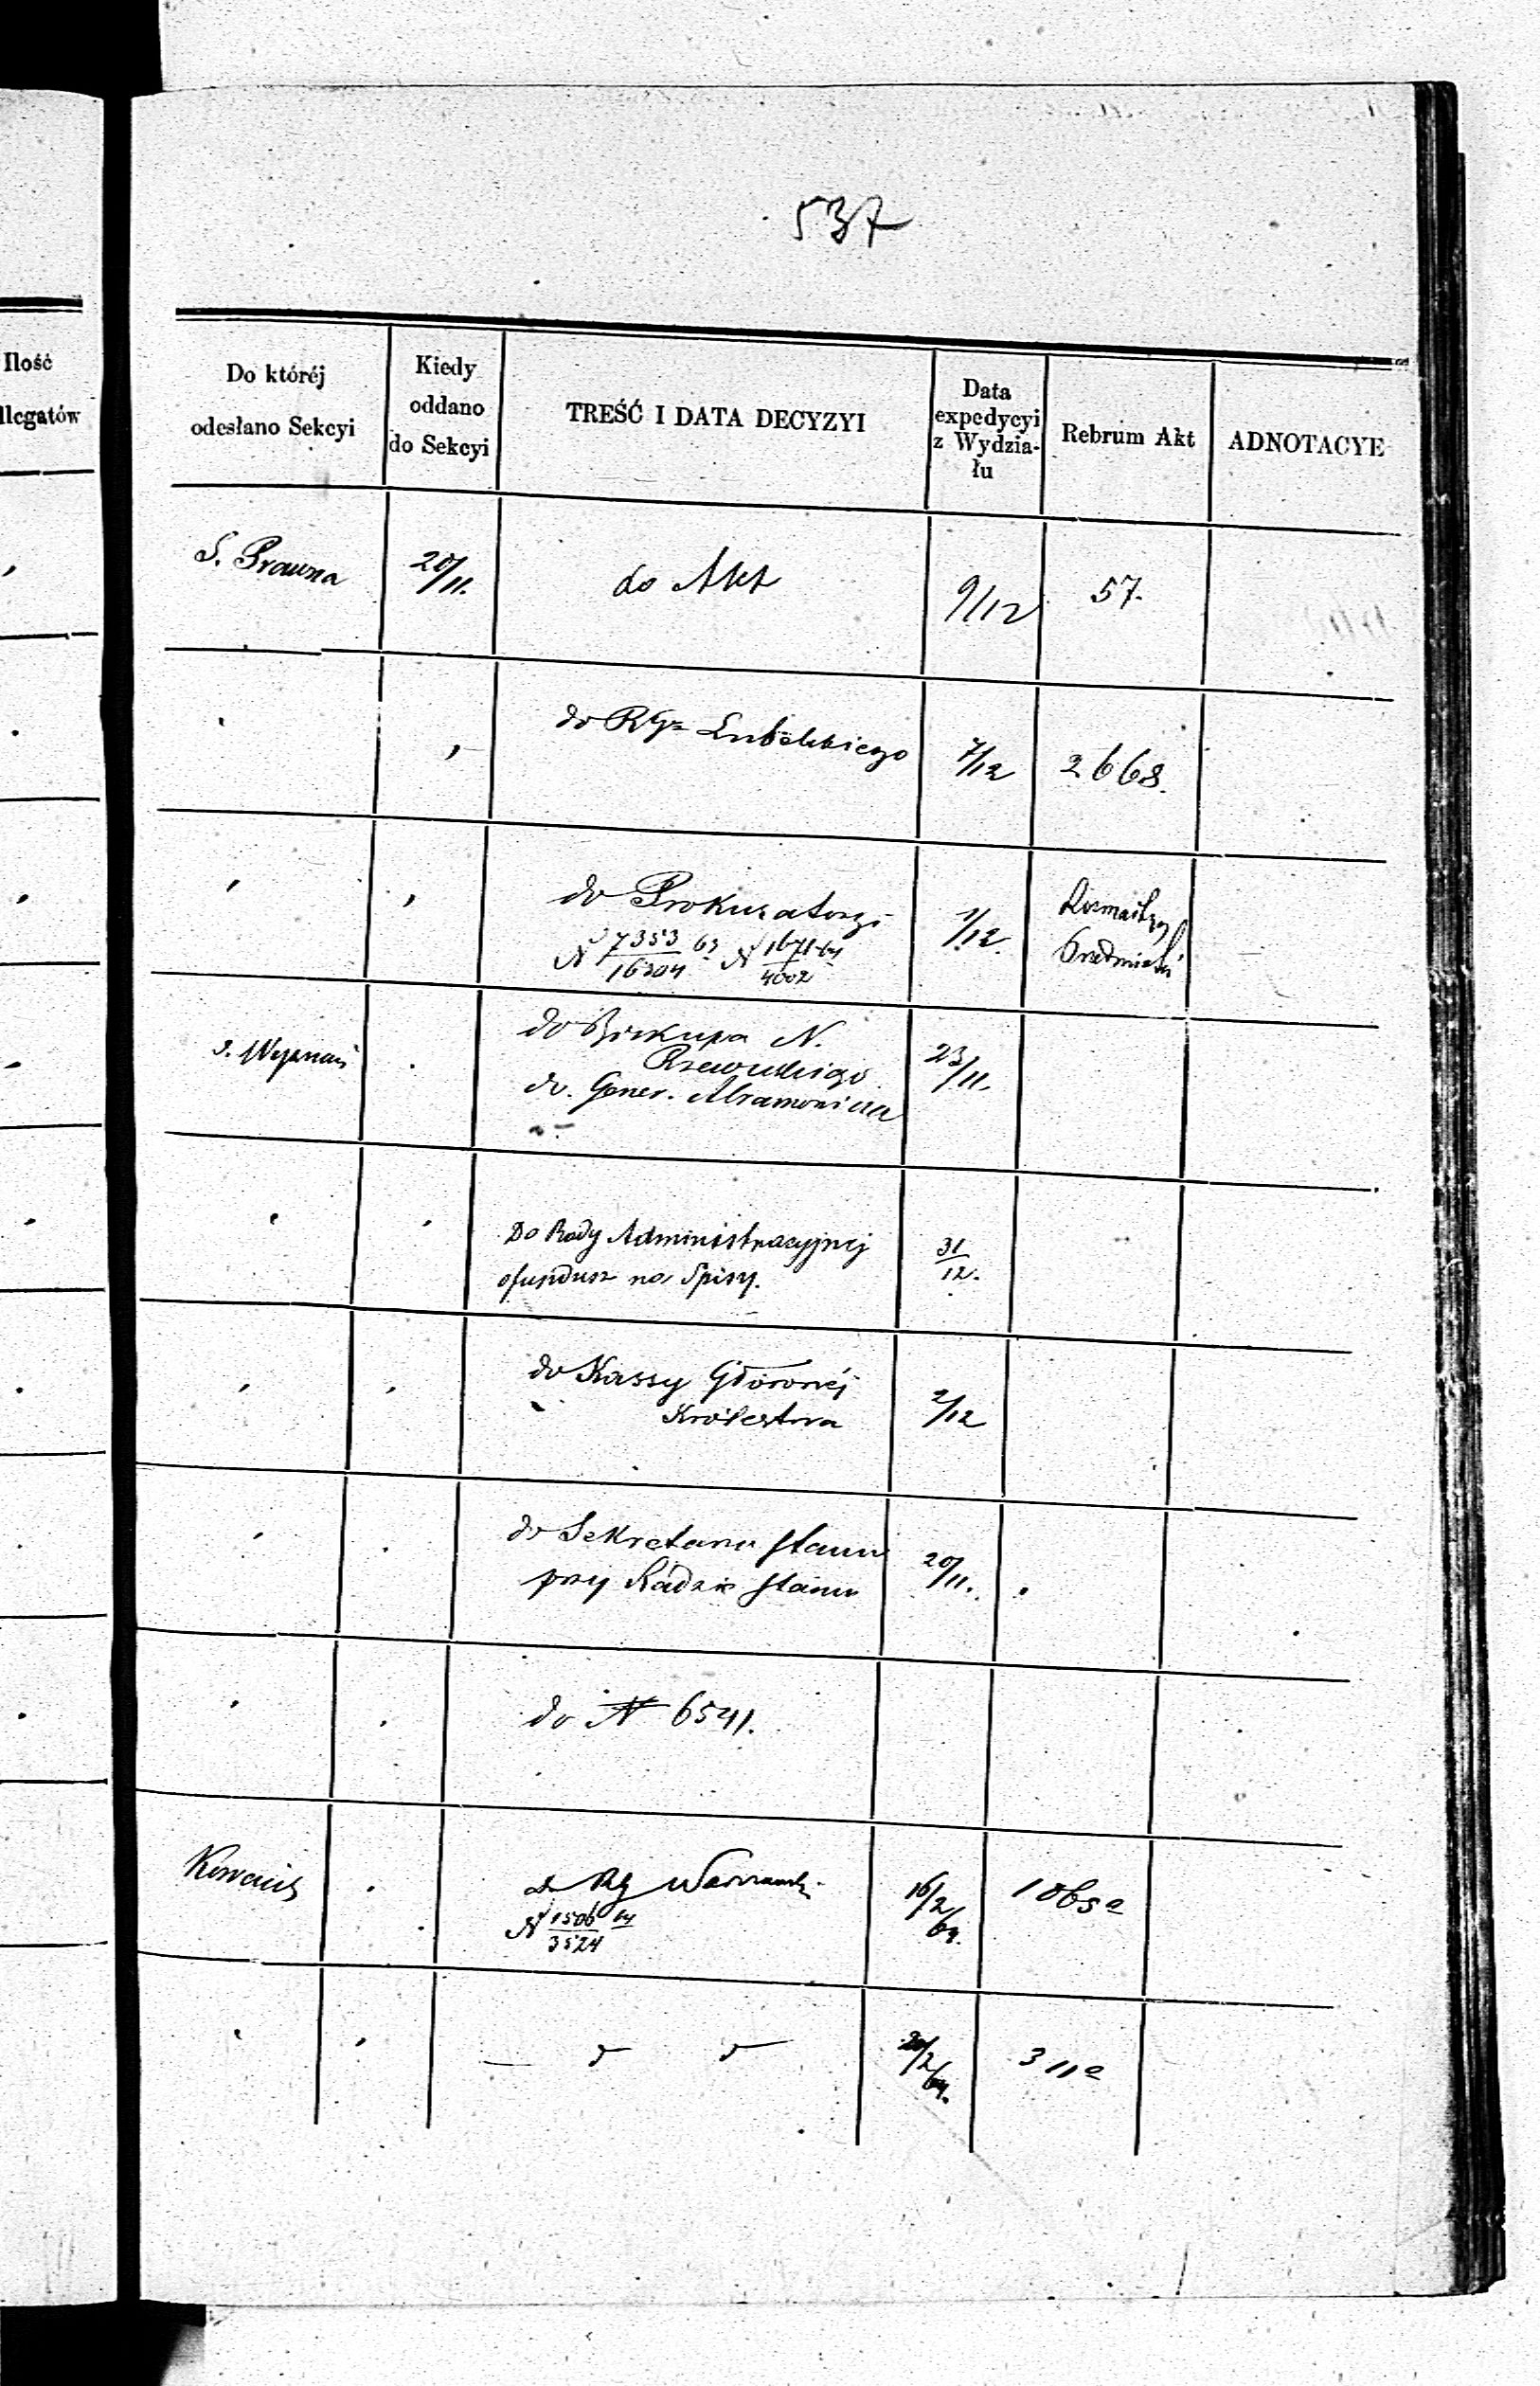 537
Ilość
llegatów
Do któréj
odesłano Sekcyi
Kiedy
oddano
do Sekcyi
TREŚĆ I DATA DECYZYI
Data
expedycyi
z Wydzia-
łu
Rebrum Akt
ADNOTACYE
S. Prawna 20/11. do Akt 9/12 57.
do RGo Lubelskiego 7/12 2668.
do Prokuratoryi 1/12.
N 7353/16304 63 N 1671/4002 64
Rozmaitych
Przedmiotów
S. Wyznań
do Biskupa N.
Rzewuskiego
do. Gener. Abramowicza
23/11.
Do Rady Administracyjnej
ofundusz na Spisy.
31/12.
do Kassy Głównéj
Królestwa
2/12
do Sekretarza Stanu
przy Radzie Stanu
20/11.
do N 6541.
do RG Warszawsk.
N 1506/3524 64
16/2 64.
1065a
20/2 64.
311a